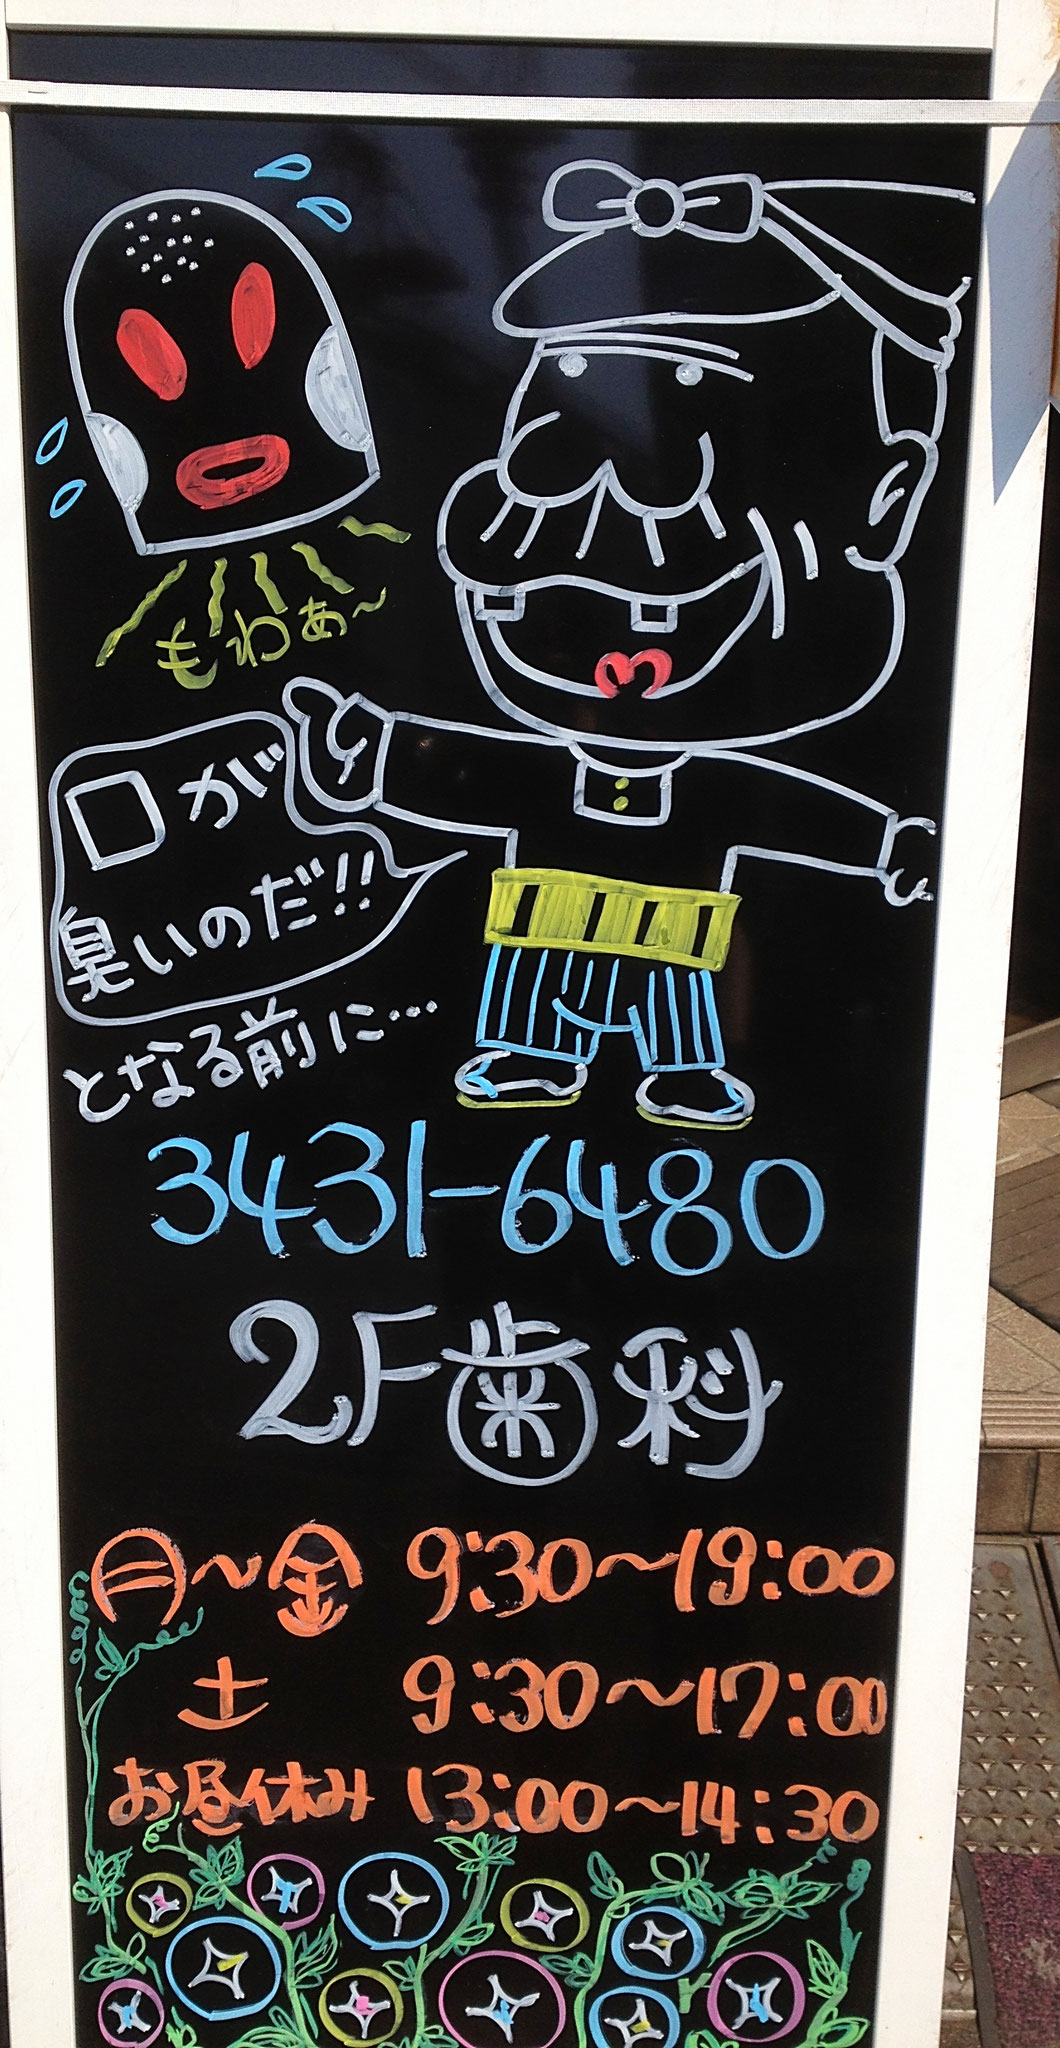 もわぁ〜
口が
臭いのだ!!
となる前に…
3431-6480
2F歯科
月〜金 9:30〜19:00
土 9:30〜17:00
お昼休み 13:00〜14:30